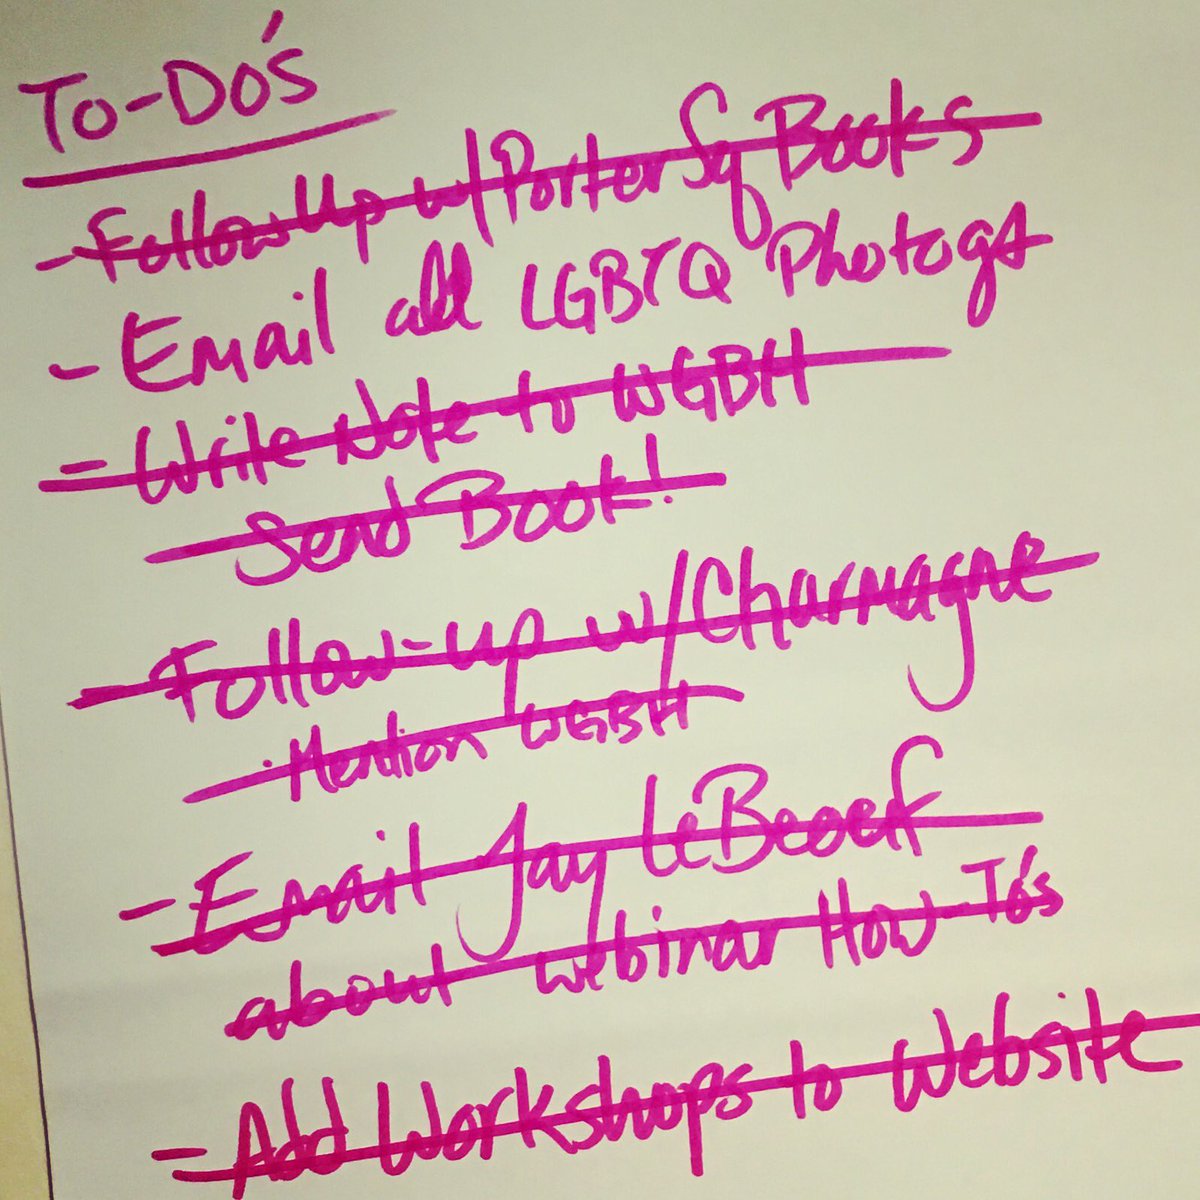 To-Do's
- Follow Up w/ Porter Sq Books
- Email all LGBTQ Photogs
- Write Note to WGBH
- Send Book!
- Follow-up w/ Charmagne
· Mention WGBH
- Email Jay LeBeoef
about webinar How-To's
- Add Workshops to Website